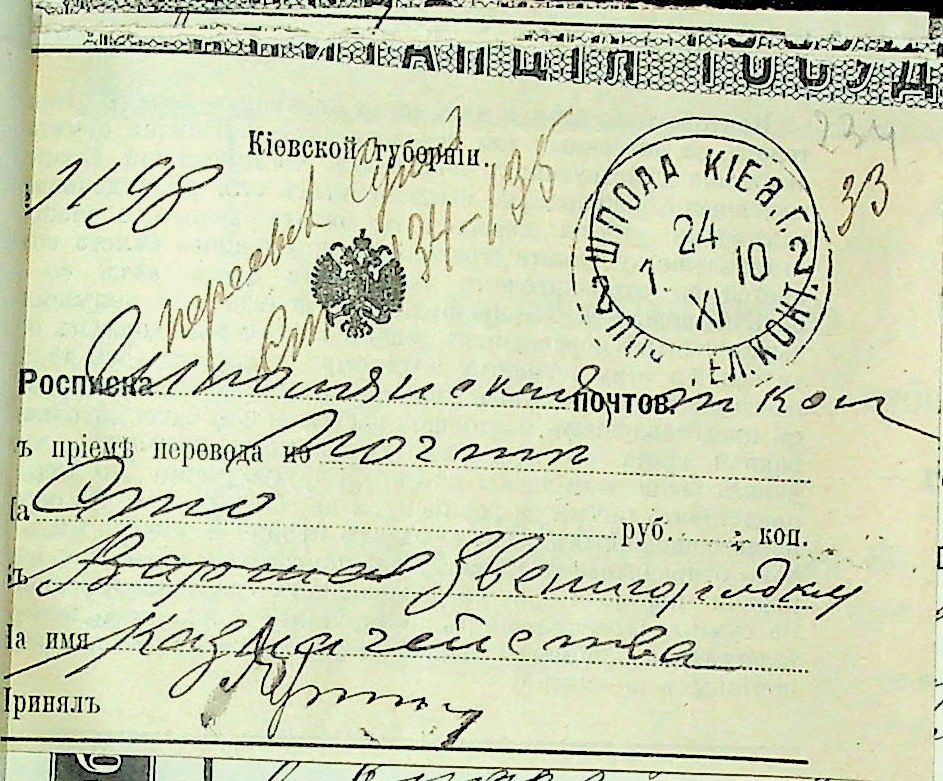 234
Кіевской губерніи.
1198
134-135
33
ШПОЛА КІЕВ. Г.
24
1. 10
XI
2 2
ЕЛ. КОНТ.
Росписка Шполянской почтов.
ъ пріемѣ перевода по Почтѣ
На Сто руб. коп.
ъ Варшава Звенигородку
На имя Казначейства
Принялъ